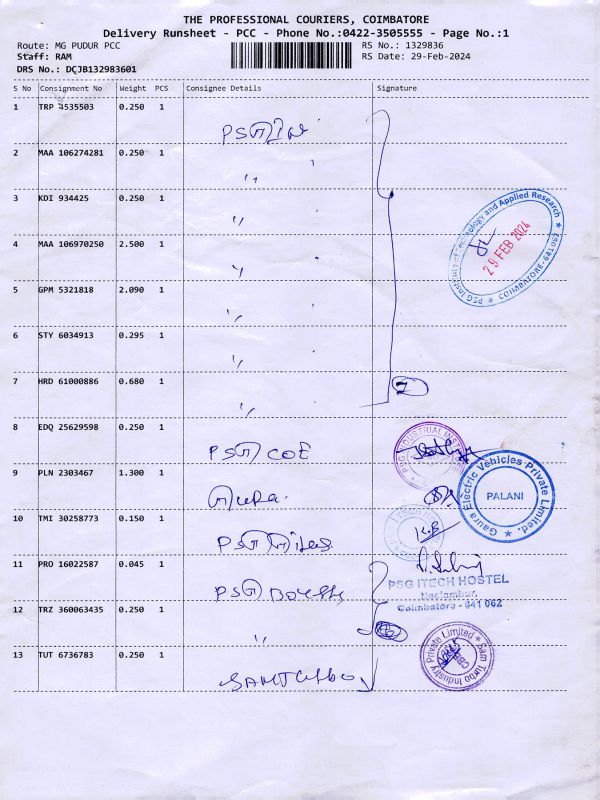 THE PROFESSIONAL COURIERS, COIMBATORE
Delivery Runsheet - PCC - Phone No.:0422-3505555 - Page No.:1
Route: MG PUDUR PCC RS No.: 1329836
Staff: RAM RS Date: 29-Feb-2024
DRS No.: DCJB132983601
S No Consignment No Weight PCS Consignee Details Signature
1 TRP 4535503 0.250 1
2 MAA 106274281 0.250 1 "
3 KDI 934425 0.250 1 "
4 MAA 106970250 2.500 1 "
5 GPM 5321818 2.090 1 "
6 STY 6034913 0.295 1 "
7 HRD 61000886 0.680 1 " 7
8 EDQ 25629598 0.250 1 PSG COE
9 PLN 2303467 1.300 1 Gaura.
10 TMI 30258773 0.150 1 PSG K.B
11 PRO 16022587 0.045 1 PSG
12 TRZ 360063435 0.250 1 "
13 TUT 6736783 0.250 1
PSG Institute of Technology and Applied Research
29 FEB 2024
COIMBATORE-641 062
PSG INDUSTRIAL INSTITUTE
Gaura Electric Vehicles Private Limited.
PALANI
PSG ITECH HOSTEL
Neelambur,
Coimbatore - 641 062
Sam Turbo Industry Private Limited